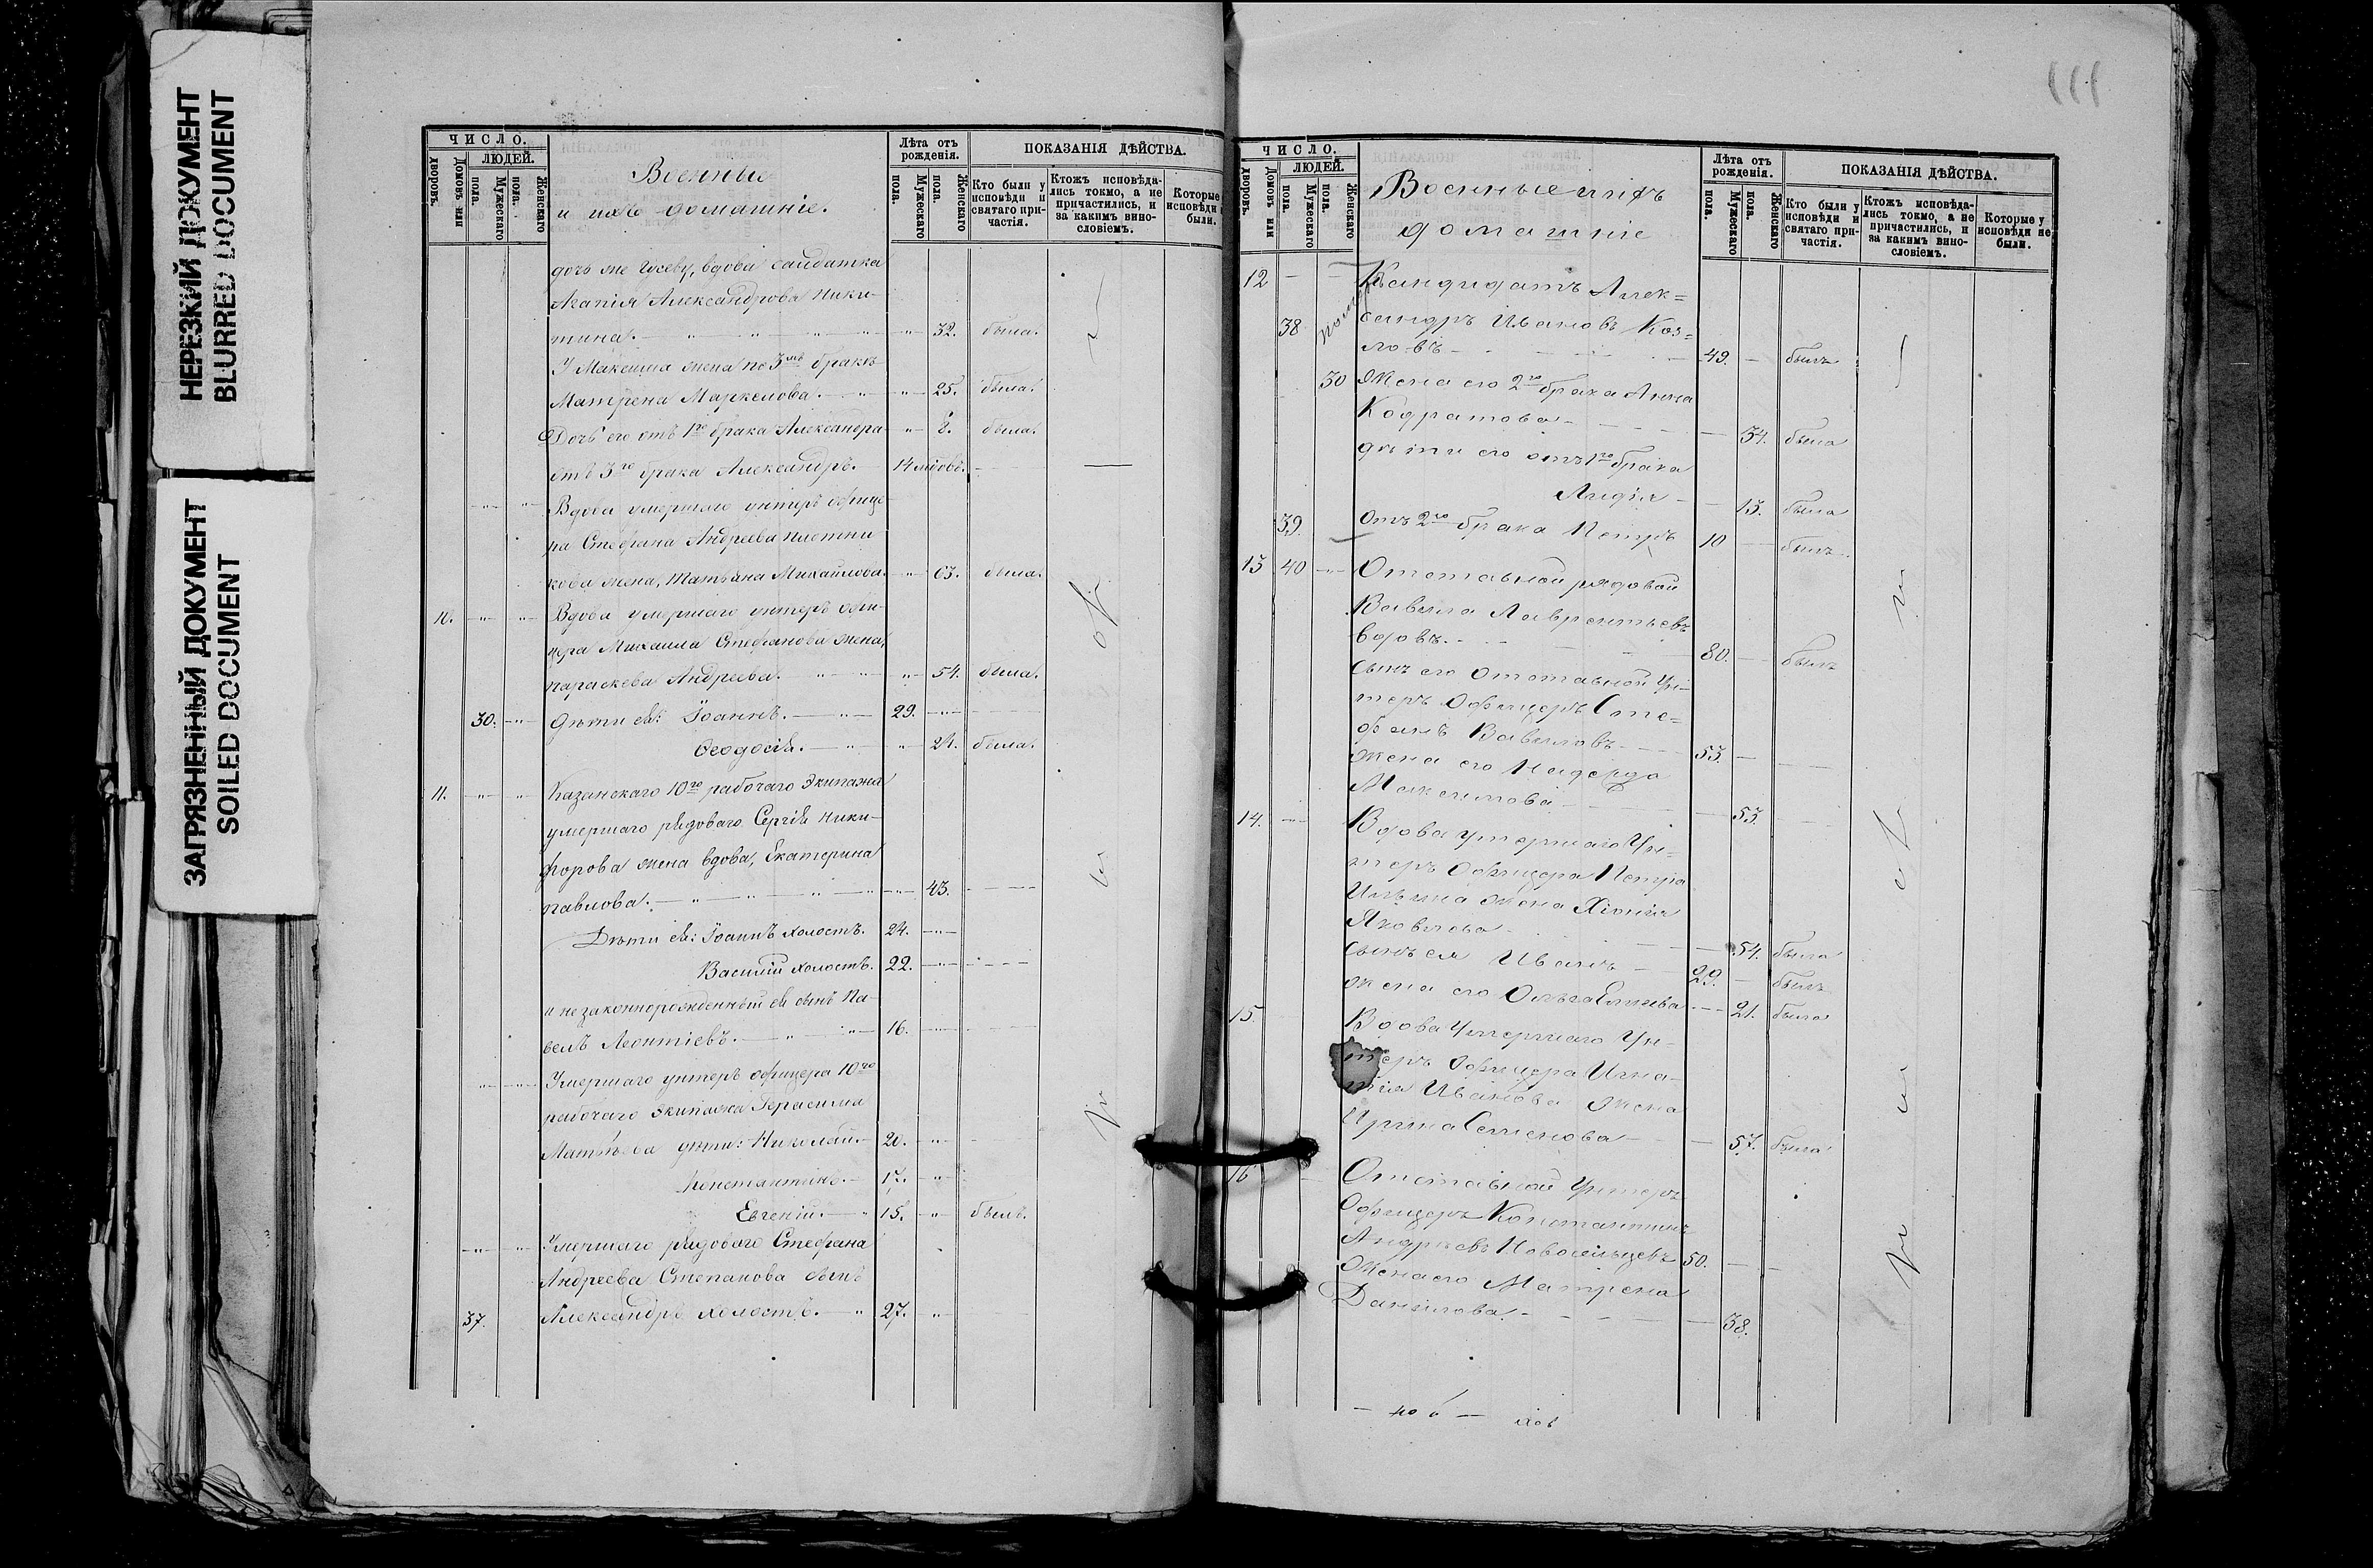 НЕРЕЗКИЙ ДОКУМЕНТ
BLURRED DOCUMENT
ЗАГРЯЗНЕННЫЙ ДОКУМЕНТ
SOILED DOCUMENT
ЧИСЛО.
ЛЮДЕЙ.
Домовъ или дворовъ.
Мужескаго пола.
Женскаго пола.
Военные
и ихъ домашніе.
Лѣта отъ рожденія.
Мужескаго пола.
Женскаго пола.
ПОКАЗАНІЯ ДѢЙСТВА.
Кто были у исповѣди и святаго причастія.
Ктожъ исповѣдались токмо, а не причастились, и за какимъ винословіемъ.
Которые исповѣди были.
дочь вдова салдатка
Агапія Александрова Ники-
тина. 32. была.
У Максима жена по 3мъ бракѣ
Матрена Маркелова. 25. была.
Дочь его отъ 1го брака 8. была.
отъ 3го брака Александръ. 14
Вдова умершаго унтеръ офице
ра Стефана Андреева Плотни
кова жена, Татьяна Михайлова. 63. была.
10. Вдова умершаго унтеръ офи-
цера Михаила Стефанова жена,
Параскева Андреева. 54. была.
30. Дѣти ея: Іоаннъ. 29.
Феодосія. 24. была.
11. Казанскаго 10го рабочаго Экипажа
умершаго рядоваго Сергія Ники-
форова жена вдова, Екатерина
Павлова. 43.
Дѣти ея: Іоаннъ холостъ. 24.
Василій холостъ. 22.
и незаконнорожденный ея сынъ Па-
велъ Леонтіевъ. 16.
Умершаго унтеръ офицера 10го
рабочаго экипажа Герасима
дѣти: Николай. 20.
Константинъ. 17.
Евгеній. 15. былъ.
Умершаго рядоваго Стефана
Андреева Степанова сынъ
37. Александръ холостъ. 27.
ЧИСЛО.
ЛЮДЕЙ.
Домовъ или дворовъ.
Мужескаго пола.
Женскаго пола.
Военные ихъ
домашніе
Лѣта отъ рожденія.
Мужескаго пола.
Женскаго пола.
ПОКАЗАНІЯ ДѢЙСТВА.
Кто были у исповѣди и святаго причастія.
Ктожъ исповѣдались токмо, а не причастились, и за какимъ винословіемъ.
Которые у исповѣди не были.
12 Кандидатъ Алек=
38 сандръ Ивановъ Коз=
ловъ 49. былъ
30 Жена его 2го брака Анна
Кодратова 34. была
дѣти его отъ 1го брака
Лидія 13. была
39. Отъ 2го брака Петръ 10 былъ.
13 40 Отставной рядовой
Вавила Лаврентьевъ
80. былъ
сынъ его отставной Ун-
теръ Офицеръ Сте=
фанъ Вавиловъ 53.
Жена его Надежда
Максимова 53.
14. Вдова умершаго Ун=
теръ Офицера Петра
Ильина жена Хіонія
Яковлева 54. была
сынъ ея Иванъ 29. былъ
жена его Ольга 21. была
15. Вдова Умершаго Ун-
теръ Офицера Игна-
тія Иванова жена
Ирина Семенова 57. была
16 Отставной Унтеръ
Офицеръ Константинъ
Андреевъ Новосильцевъ 50.
Жена его Матрена
Данилова. 38.